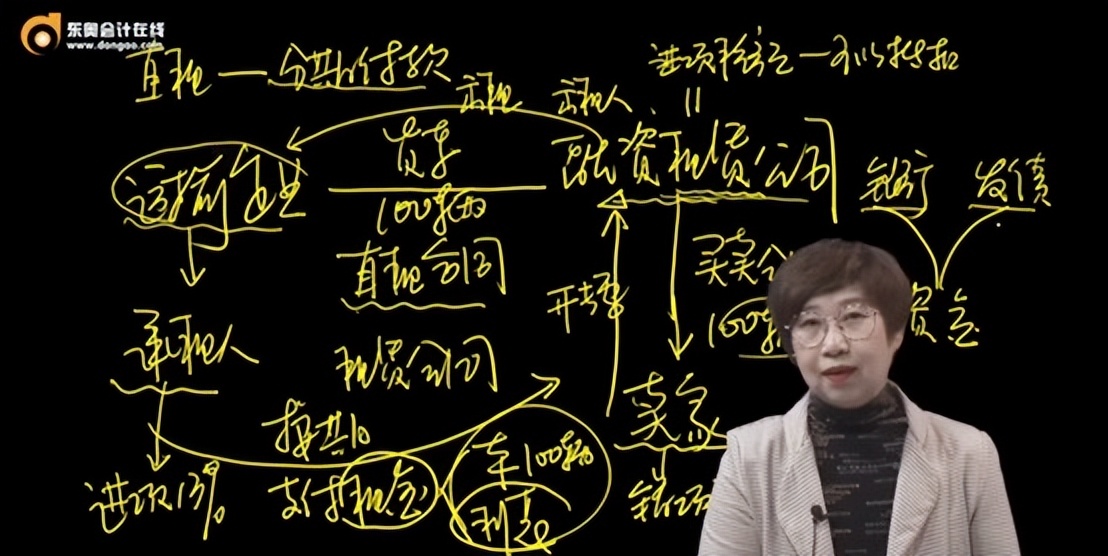 东奥会计在线
www.dongao.com
直租—分期付款
进项税额—可以抵扣
出租 出租人
运输企业
货车
100辆
融资租赁公司
银行 发债
直租合同
开专票
买卖合
100辆
资金
承租人
租赁合同
卖家
按期
进项13%
支付租金
车100辆
利息
销项